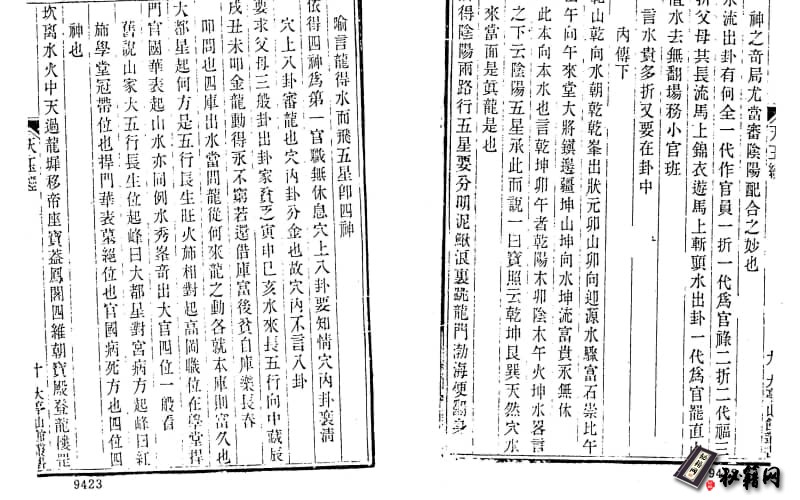 神之奇局尤當審陰陽配合之妙也
水流出卦有何全一代作官員一折一代為官祿二折二代福三
折父母共長流馬上錦衣遊馬上斬頭水出卦一代為官罷直
直水去無翻場務小官班
言水貴多折又要在卦中
內傳下
乾山乾向水朝乾乾峯出狀元卯山卯向迎源水驟富石崇比午
山午向午來堂大將鎮邊疆坤山坤向水坤流富貴永無休
此本向本水也言乾坤卯午者乾陽木卯陰木午火坤水各言
之下云陰陽五星承此而說一曰寶照云乾坤艮巽天然穴水
來當面是真龍是也
識得陰陽兩路行五星要分明泥鰍浪裏跳龍門渤海便翻身
天玉經
九 大亭山館叢書
喻言龍得水而飛五星卽四神
依得四神爲第一官職無休息穴上八卦要知情穴內卦裝淸
穴上八卦審龍也穴內卦分金也故穴內不言八卦
要求父母三般卦出卦家貧乏寅申巳亥水來長五行向中藏辰
戌丑未叩金龍動得永不窮若還借庫富後貧自庫樂長春
叩問也四庫出水當問龍從何來龍之動各就本庫則富久也
大都星起何方是五行長生旺火旆相對起高岡職位在學堂捍
門官國華表起山水亦同例水秀峯奇出大官四位一般看
舊說山家大五行長生位起峰曰大都星對宮病方起峰曰紅
旆學堂冠帶位也捍門華表墓絕位也官國病死方也四位四
神也
坎離水火中天過龍墀移帝座寶蓋鳳閣四維朝寶殿登龍樓罡
天玉經
十 大亭山館叢書
9423
秘籍网